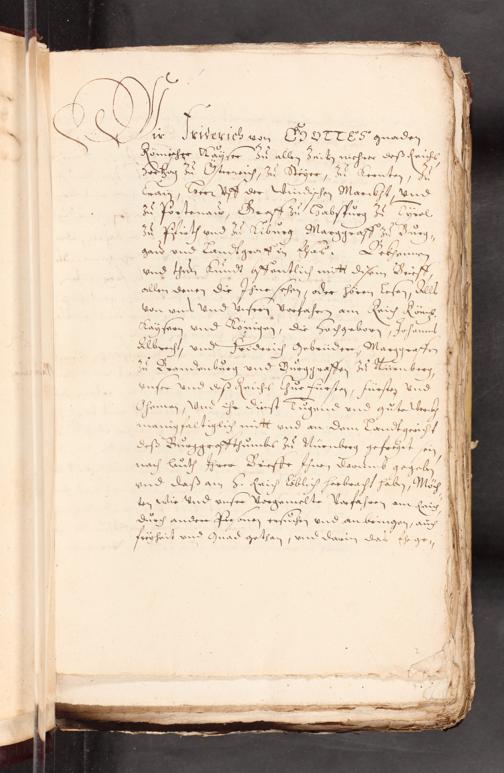 Wir Friderich von GOTTES gnaden
Römischer Kayser Zu allen Zeiten mehrer deß Reichs,
Hertzog Zu Österreich, Zu Steyer, Zu Kernten, Zu
Crain, Herr Vff der Windischen Marckh, Vnd
Zu Portenau, Graff Zu Habspurg Zu Tyrol
Zu Pfirtt vnd Zu Kiburg Marggraff Zu Burg-
gau vnd Landtgraff in Elsas. Bekhennen
vnd thun kundt offentlich mitt disem Brieff,
allen denen die Ihne sehen, oder hören lesen, Alß
von vns vnd vnsern Vorfahren am Reich Röm.
Kaysern vnd Königen, die Hochgeborn, Johanns
Albrecht, vnd Friderich Gebrüdere, Marggraffen
Zu Brandenburg vnd Burggraffen Zu Nürmberg,
vnser vnd deß Reichs Churfürsten, Fürsten vnd
vnd Ihr dienst Tugend vnd gute
manigfaltiglich mitt vnd an dem Landtgericht
deß Burggraffthumbs Zu Nürmberg gefreyet sein,
nach lauth Ihrer Brieffe Ihnen darumb gegeben
vnd daß am H. Reich löblich herbracht haben, Möch-
ten wie Vnd vnser Vorgemelte Vorfahren am Reich
durch andere Personen ersuchen vnd anbringen, auch
freyheit vnd Gnad gethan, vnd darin